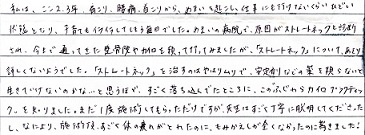 私は、ここ2、3年、肩こり、腰痛、首こりから、めまいを起こし、仕事にも行けないくらいひどい
状態となり、子育てもイライラしてしまう毎日でした。めまいの病院で、原因がストレートネックと診断
され、今まで通ってきた整骨院や針灸を頼って行ってみましたが、「ストレートネック」について、あまり
詳しくないようでした。「ストレートネック」を治すのはやはりムリで、安定剤などの薬を頼らないと
生きていけないのかな…と思うほど、すごく落ち込んでたところに、このふじわらカイロプラクティ
ックを知りました。まだ1度施術してもらっただけですが、先生はすごく丁寧に説明してくださった
し、なにより、施術後、すごく体の疲れがとれたのに、もみかえしが全くなかったのに驚きました!